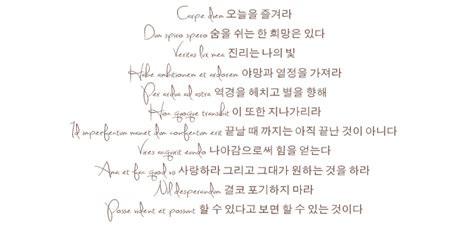 Carpe diem 오늘을 즐겨라
Dum spiro spero 숨을 쉬는 한 희망은 있다
Veritas lux mea 진리는 나의 빛
Habe ambitionem et ardorem 야망과 열정을 가져라
Per ardua ad astra 역경을 헤치고 별을 향해
Hoc quoque transibit 이 또한 지나가리라
Id imperfectum manet dum confectum erit 끝날 때 까지는 아직 끝난 것이 아니다
Vires acquirit eundo 나아감으로써 힘을 얻는다
Ama et fac quod vis 사랑하라 그리고 그대가 원하는 것을 하라
Nil desperandum 결코 포기하지 마라
Posse vident et possunt 할 수 있다고 보면 할 수 있는 것이다